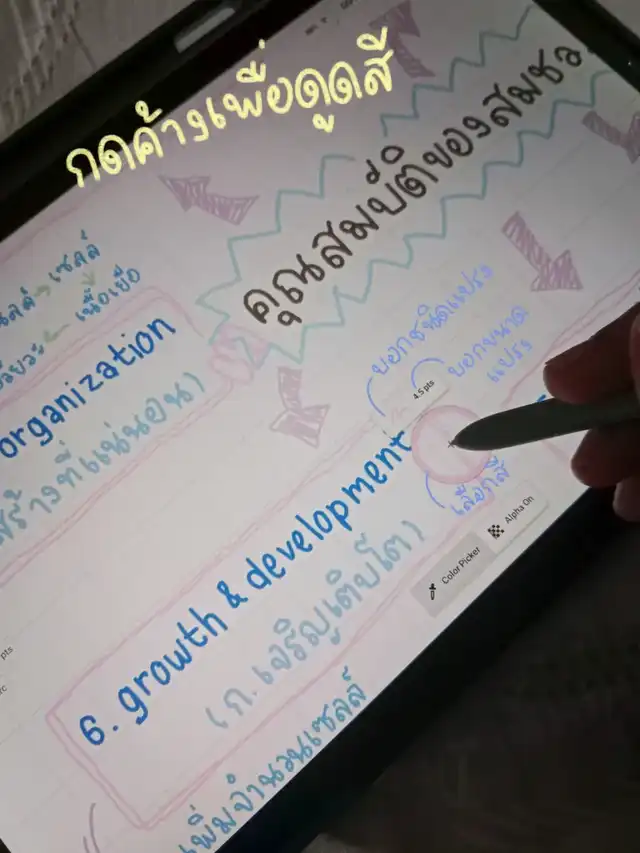 กดค้างเพื่อดูดสี
คุณสมบัติของสมชว
เซลล์
เนื้อเยื่อ
organization
สร้างที่แน่นอน)
บอกชนิดแปรง
บอกขนาด
แปรง
4.5 pts
เลือกสี
Color Picker
Alpha On
6. growth & development
(ก. เจริญเติบโต)
เพิ่มจำนวนเซลล์
pts